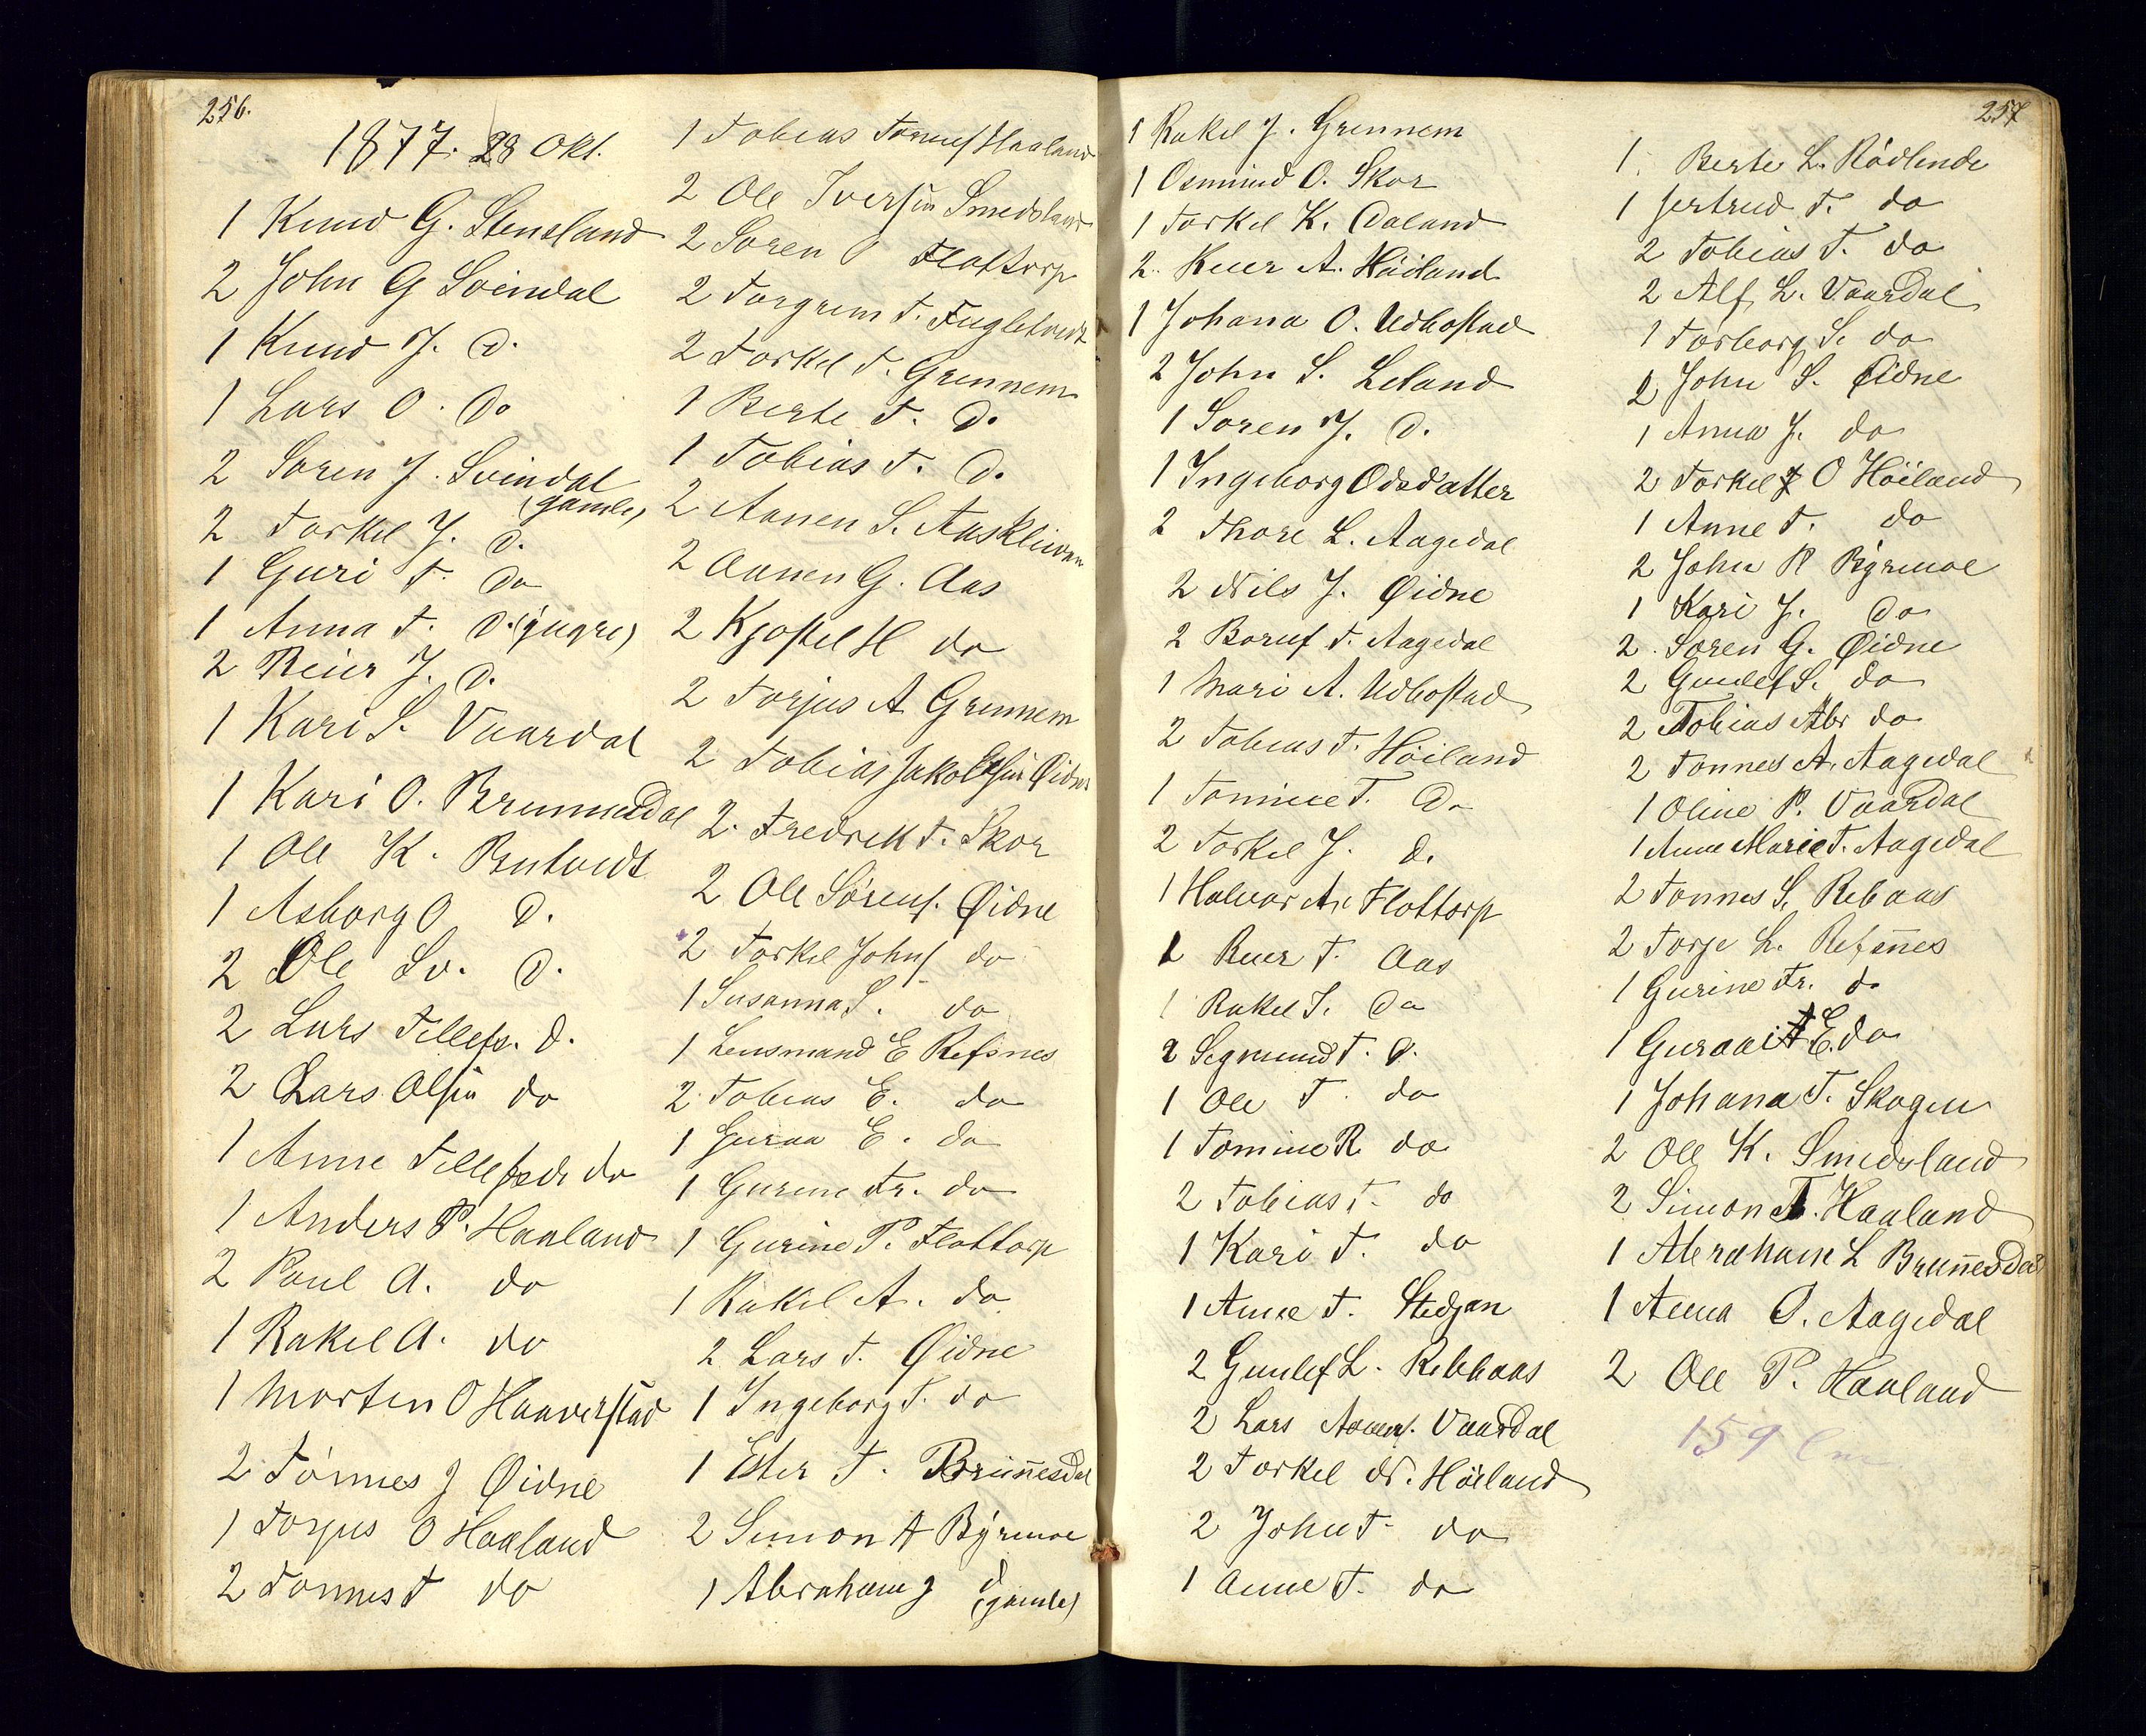 256.
1877. 28 Okt.
1 Knud G. Stensland
2 John G Svindal
1 Knud J. D.
1 Lars O. Do
2 Soren J. Svindal
(gamle)
2 Torkel J. D.
1 Guri T. Do
1 Anna T. D. (yngre)
2 Reier J. D.
1 Kari S. Vaardal
1 Kari O. Brunnesdal
1 Ole K. Rutvedt
1 Asborg O D.
2 Ole Sv. D.
2 Lars Tellefs. D.
2 Lars Olsen do
1 Anne Tellefsdr do
1 Anders P. Haaland
2 Poul A. do
1 Rakel A. do
1 Morten O Haaverstad
2 Tönnes J Øidne
1 Torjus O Haaland
2 Tonnes T do
1 Tobias Tonnes Haaland
2 Ole Iversen Smedsland
2 Soren Flottorp
2 Torgrim T. Fugletvedt
2 Torkel T. Grennem
1 Berte T. D.
1 Tobias T. D.
2 Aanen S. Aasklieven
2 Aanen G. Aas
2 Kjostel H do
2 Torjus A Grennem
2 Tobias Jakobsen Øidne
2. Fredrik T. Skor
2 Ole Sörens. Øidne
2 Torkel Johns do
1 Susanna S. do
1 Lensmand E Refsnes
2 Tobias E. do
1 Guraa E. do
1 Gurine Fr. do
1 Gurine P. Flottorp
1 Rakel A. do
2 Lars T. Øidne
1 Ingeborg T. do
1 Ester T. Brun̄esdal
2 Simon A Byrmoe
1 Abraham J d
(gamle)
1 Rakel J. Grennem
1 Osmund O. Skor
1 Torkel K. Oaland
2. Reier A. Höiland
1 Johana O. Udbostad
2 John S. Leland
1 Soren J. D.
1 Ingeborg Odsdatter
2 Thore L. Aagedal
2 Nils J. Øidne
2 Boruf T. Aagedal
1 Mari A. Udbostad
2 Tobias T. Höiland
1 Tomine T. Do
2 Torkel J. d.
1 Halvor A. Flottorp
1 Reier T. Aas
1 Rakel S. Do
2 Segmund T. D.
1 Ole T. do
1 Tomine R do
2 Tobias T. do
1 Kari T. do
1 Anne T. Stedjan
2 Gunlef L. Rebhaas
2 Lars Aanens. Vaardal
2 Torkel N. Höiland
2 John T. do
1 Anne T. do
257
1. Berte L. Rödlende
1 Jertrud T. do
2 Tobias T. do
2 Alf L. Vaardal
1 Torborg S. do
2 John S. Øidne
1 Anna J. do
2 Torkel O Höiland
1 Anne T. do
2 John R Byrmoe
1 Kari J. Do
2. Soren G. Øidne
2 Gunlef S. do
2 Tobias Abr do
2 Tonnes A. Aagedal
1 Oline P. Vaardal
1 Anne Marie T. Aagedal
2 Tonnes S. Rebaas
2 Torje L. Refsnes
1 Gurine Fr. do
1 Guraai E. do
1 Johana T. Skogen
2 Ole K. Smedsland
2 Simon T. Haaland
1 Abraham L Brun̄esdal
1 Anna O. Aagedal
2 Ole P. Haaland
159